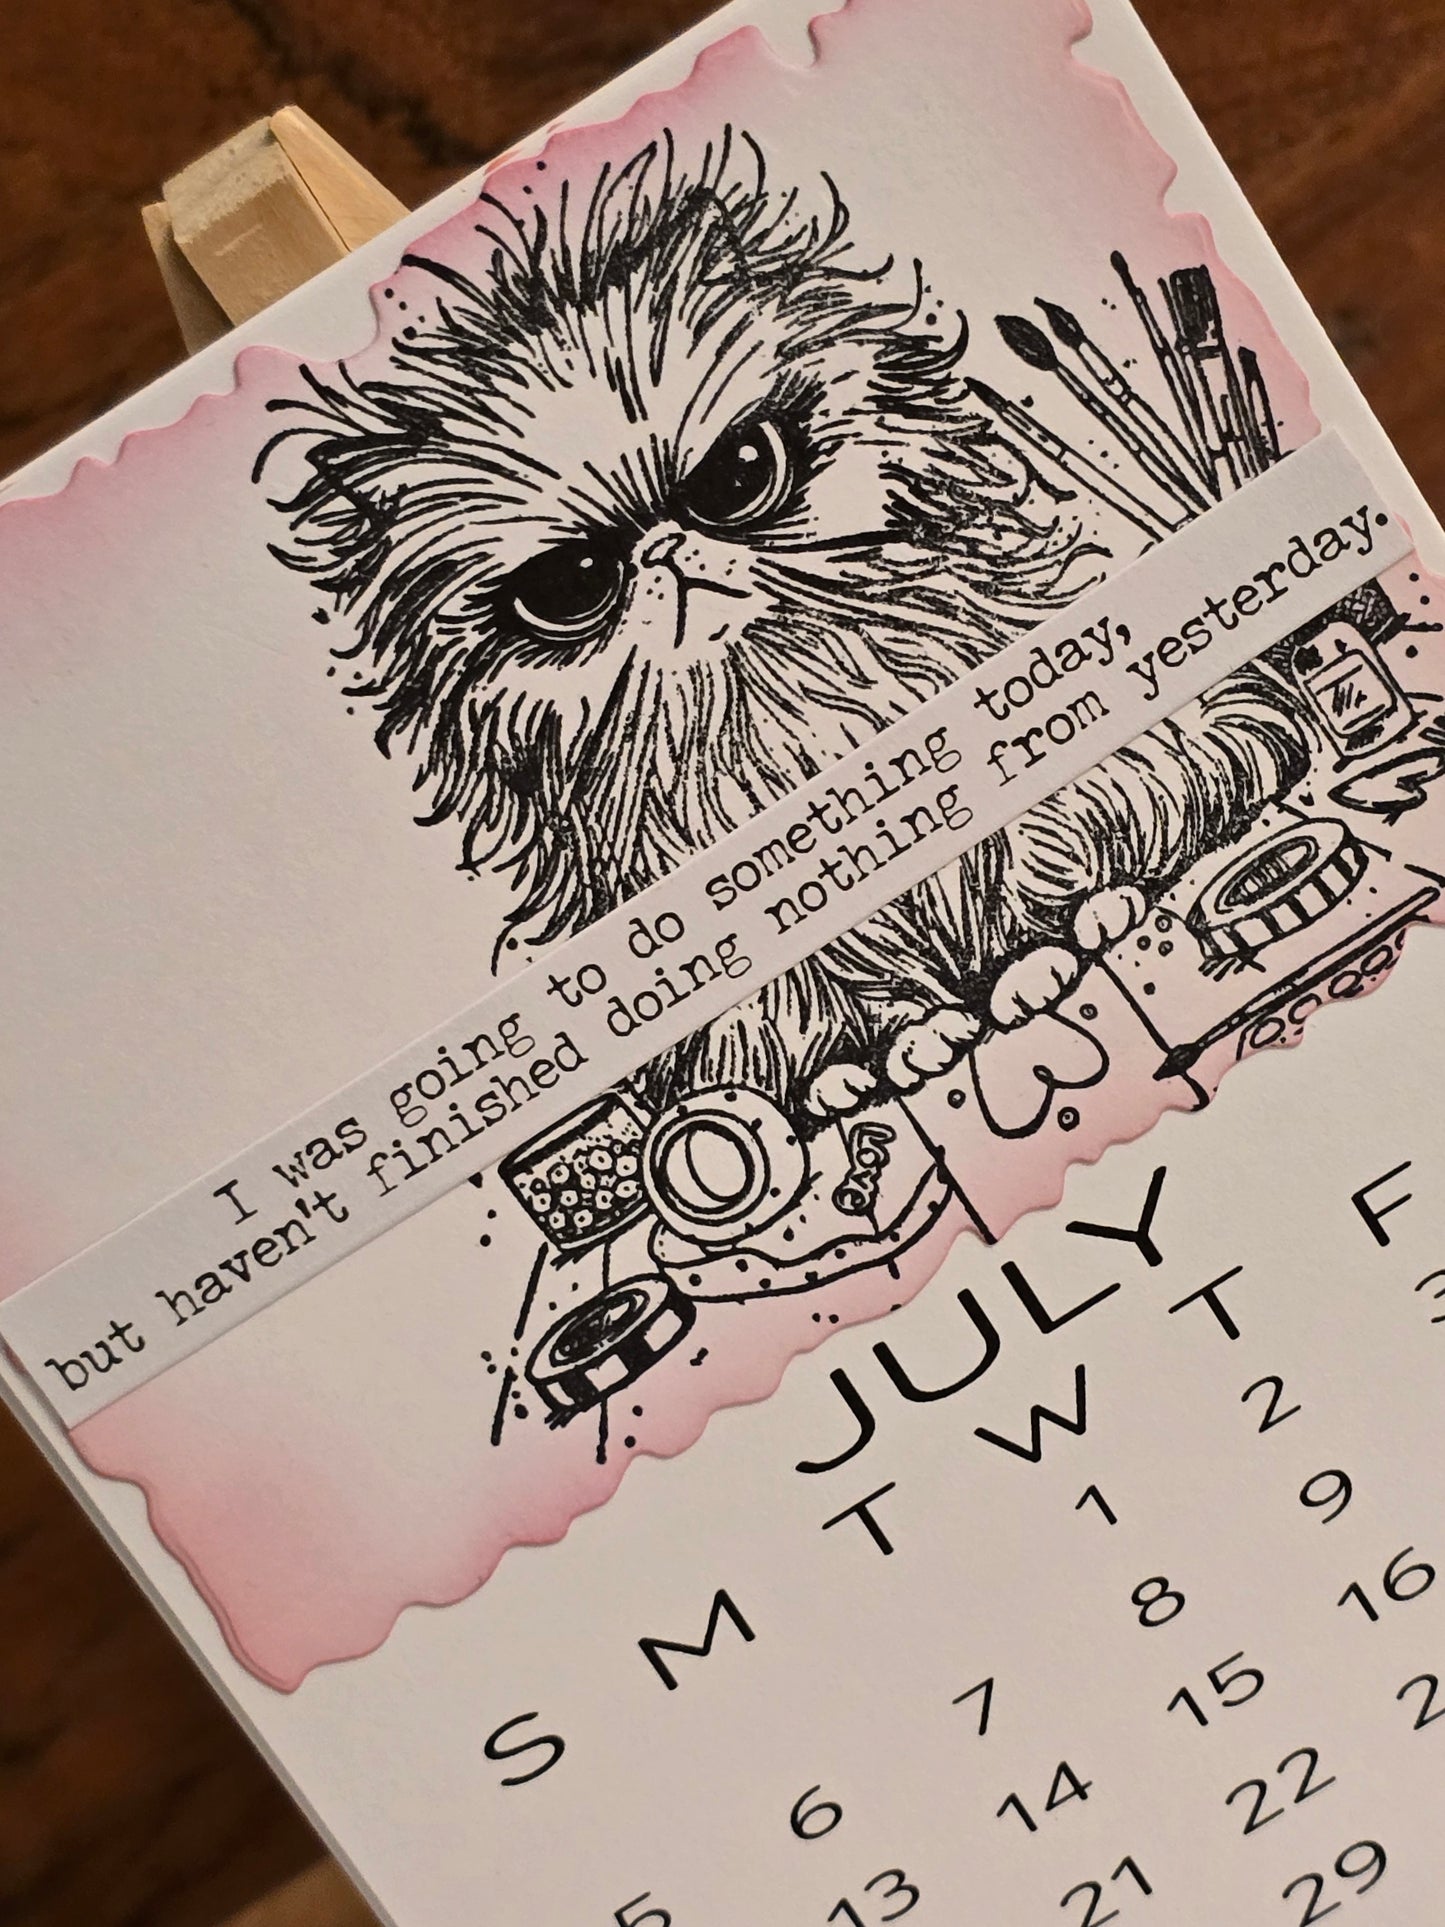 I was going to do something today,
but haven't finished doing nothing from yesterday.
Love
JULY
S M T W T F
1 2 3
5 6 7 8 9
13 14 15 16
21 22 2
29